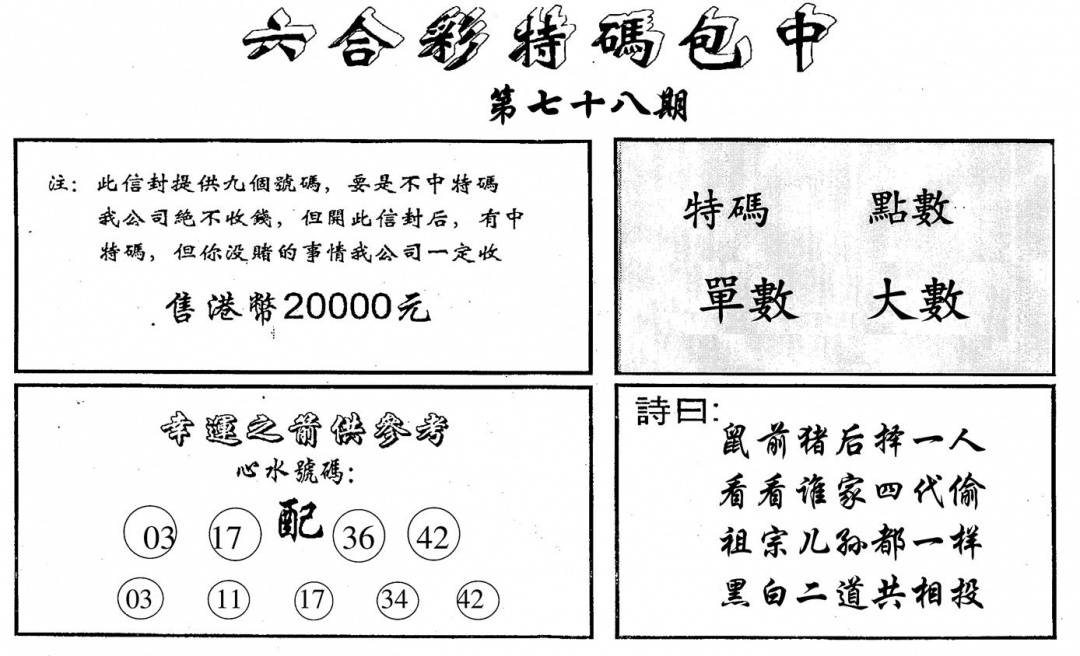 六合彩特碼包中
第七十八期
注：此信封提供九個號碼，要是不中特碼
我公司絕不收錢，但開此信封后，有中
特碼，但你没賭的事情我公司一定收
售港幣20000元
特碼 點數
單數 大數
幸運之箭供參考
心水號碼：
03 17 配 36 42
03 11 17 34 42
詩曰：
鼠前猪后择一人
看看谁家四代偷
祖宗儿孙都一样
黑白二道共相投